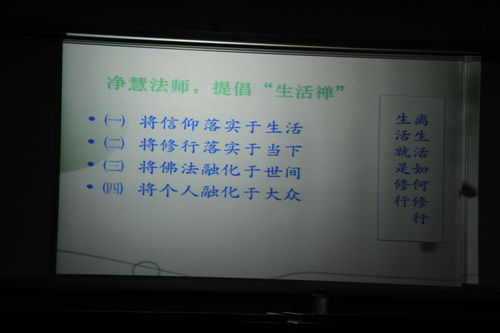 净慧法师，提倡“生活禅”
• ㈠ 将信仰落实于生活
• ㈡ 将修行落实于当下
• ㈢ 将佛法融化于世间
• ㈣ 将个人融化于大众
离生活如何修行
生活就是修行